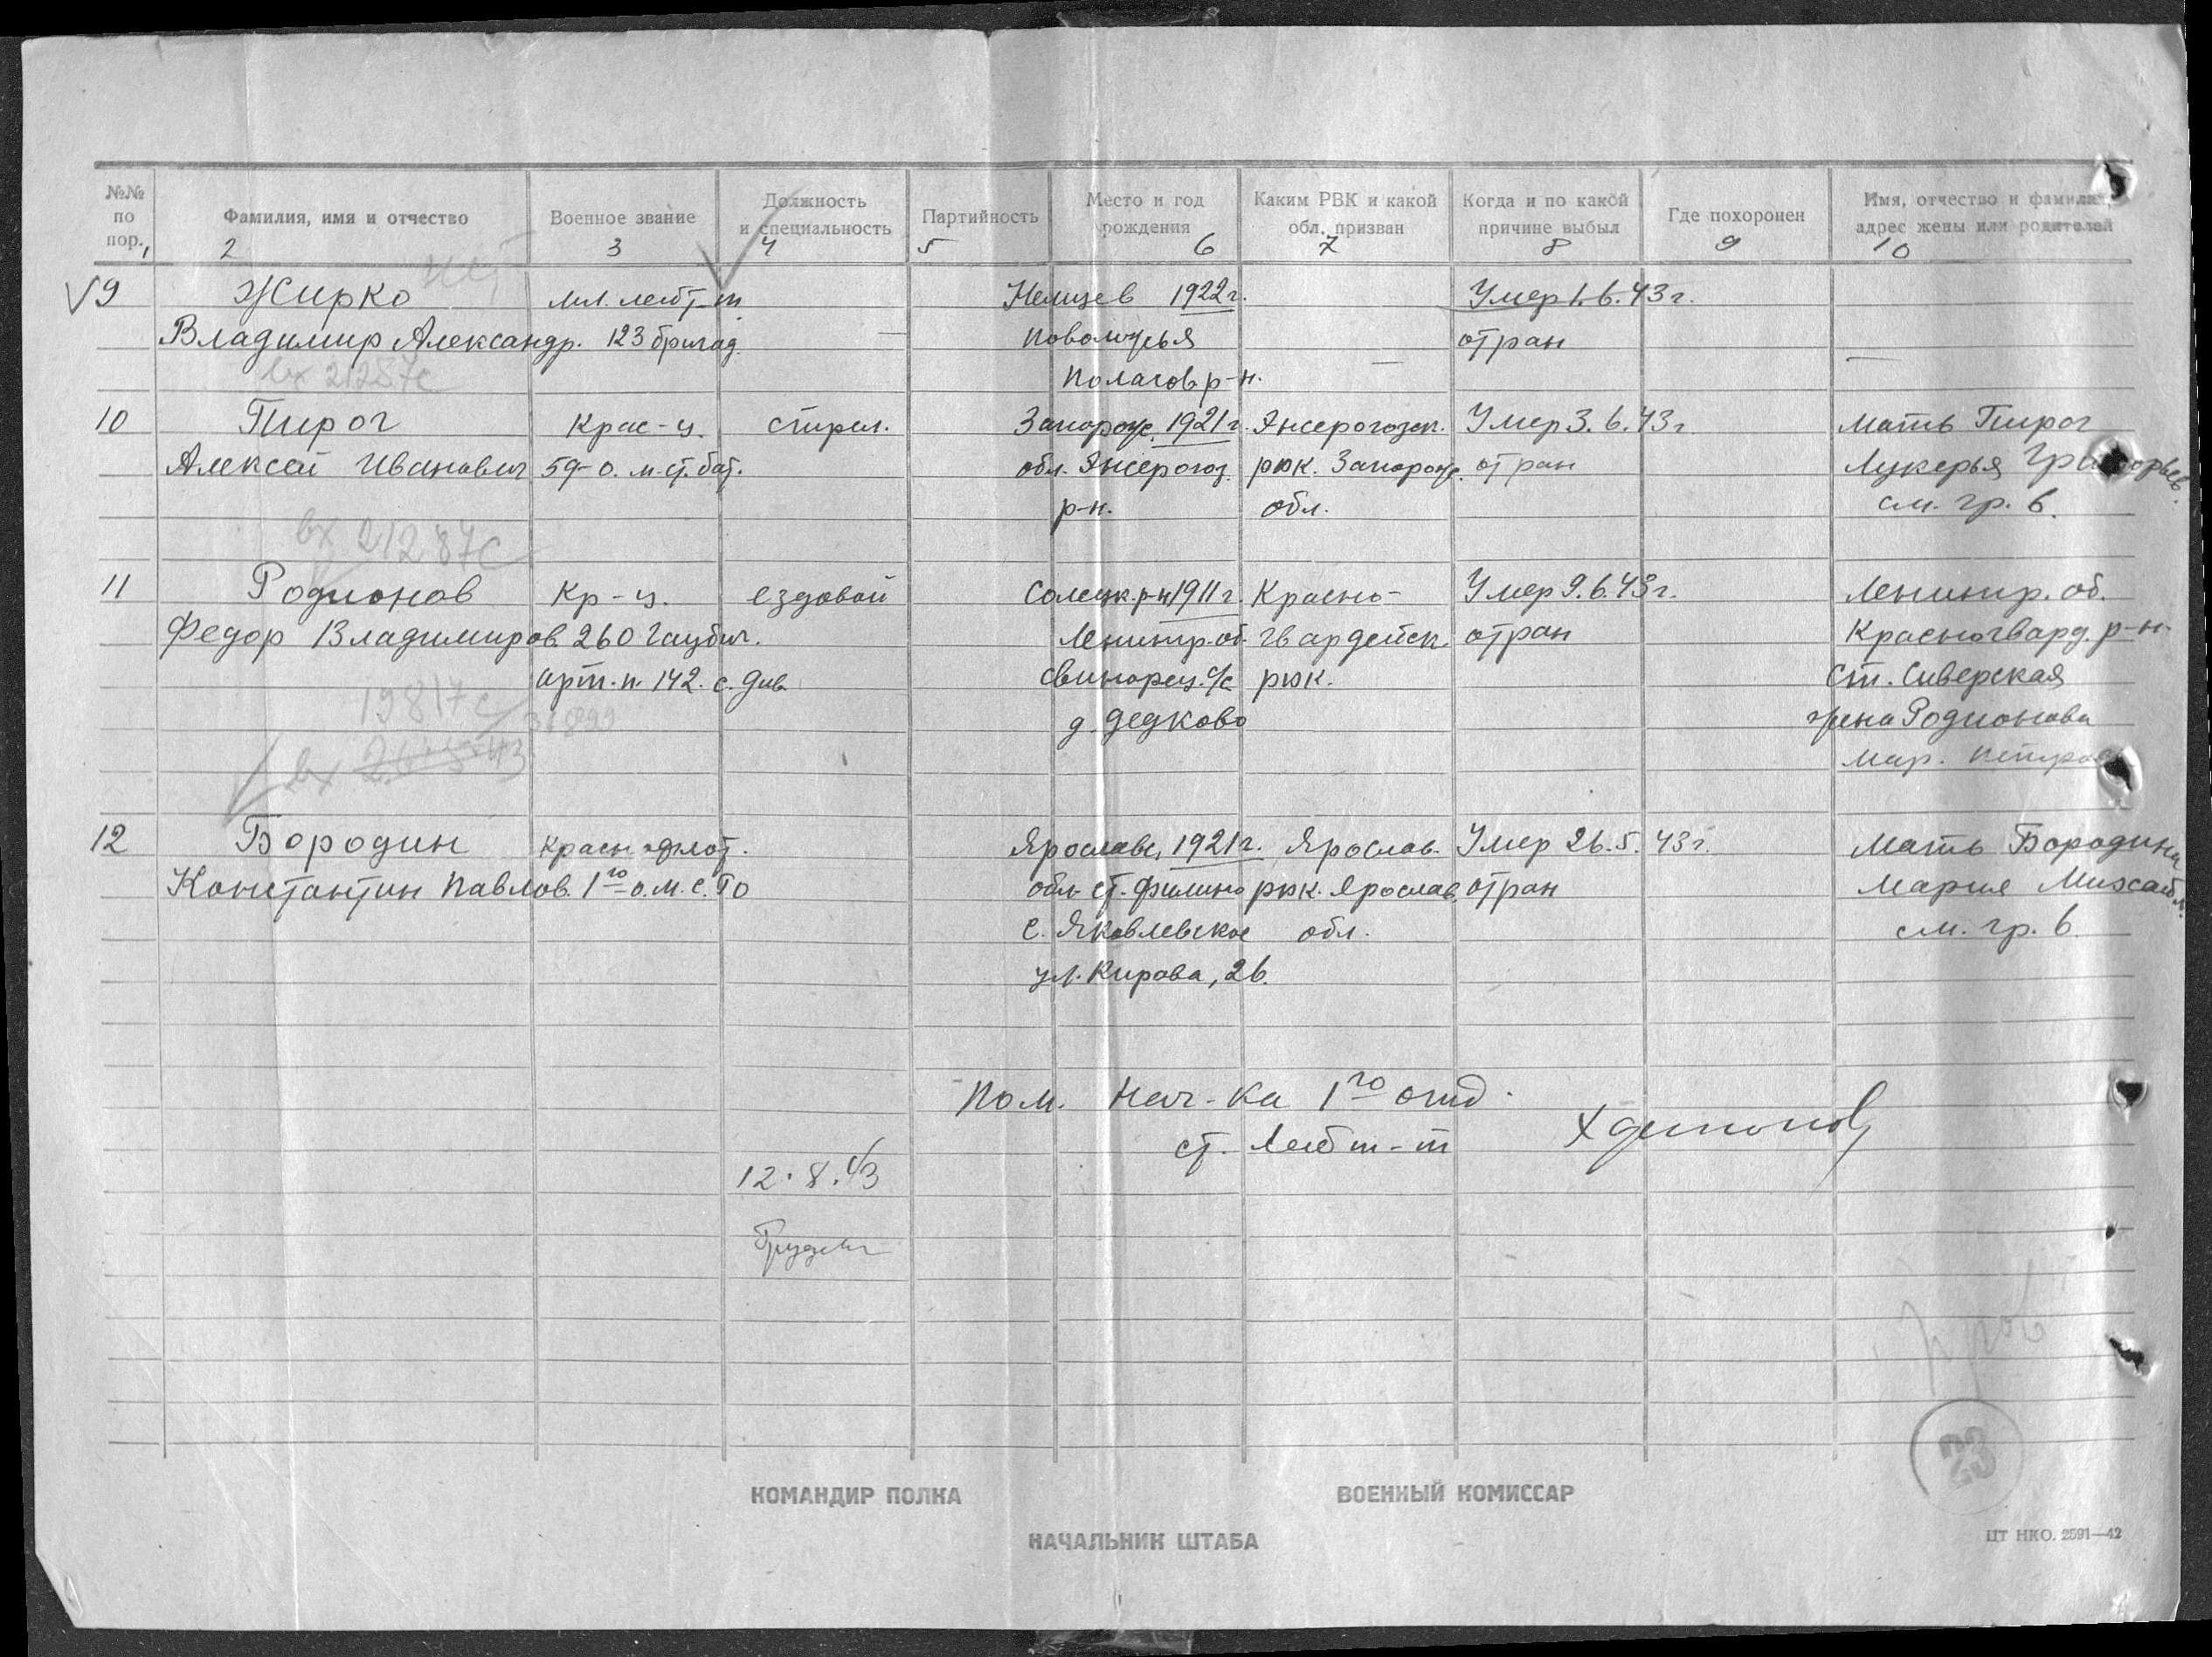 №№ по пор. Фамилия, имя и отчество Военное звание Должность и специальность Партийность Место и год рождения Каким РВК и какой обл. призван Когда и по какой причине выбыл Где похоронен Имя, отчество и фамилия, адрес жены или родителей
1 2 3 4 5 6 7 8 9 10
9 Жирко мл. лейт-т Немцев 1922 г. Умер 1.6.43 г.
Владимир Александр. 123 бригад. — Поволжья — от ран —
вх 21287с Пологов р-н.
10 Пирог Крас-ц. стрел. Запорож. 1921 г. Энсерогозск. Умер 3.6.43 г Мать Пирог
Алексей Иванович 59-о. м. ст. бат. обл. Энсерогоз. рвк. Запорож. от ран Лукерья Григорьев.
р-н. обл. см. гр. 6.
вх 21287с
11 Родионов Кр-ц. ездовой Солецк р-н 1911 г. Красно- Умер 9.6.43 г. Ленингр. об.
Федор Владимиров. 260 Гаубич. Ленингр. об. гвардейск. от ран Красногвард. р-н.
арт. п. 142. с. див. Свинорец. с/с рвк. Ст. Сиверская
19817с д. Дедково жена Родионова
вх Мар. Петров
12 Бородин Краснофлот. Ярославс. 1921 г. Ярослав. Умер 26.5.43 г. Мать Бородина
Константин Павлов. 1го о. м. с. бо обл. ст. Филино рвк. Ярослав. от ран Мария Михайл.
с. Яковлевское обл. см. гр. 6
ул. Кирова, 26.
Пом. Нач-ка 1го отд.
ст. Лейт-т
12.8.43
23
КОМАНДИР ПОЛКА ВОЕННЫЙ КОМИССАР
НАЧАЛЬНИК ШТАБА
ЦТ НКО. 2591—42